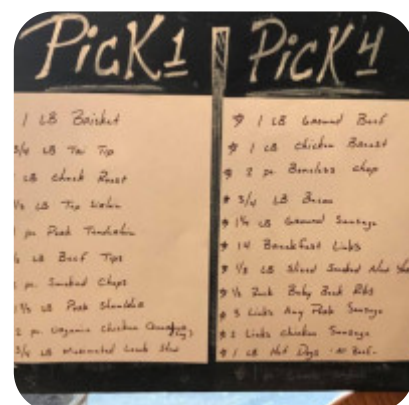 PicK 1
1 LB Brisket
3/4 LB Tri Tip
LB Chuck Roast
LB Top Sirloin
pc. Pork Tenderloin
LB Beef Tips
pc. Smoked Chops
LB Pork Shoulder
2 pc. Organic Chicken
3/4 LB Marinated Lamb Stew
PicK 4
1 LB Ground Beef
1 LB Chicken Breast
2 pc. Boneless Chop
3/4 LB Bacon
1 1/4 LB Ground Sausage
14 Breakfast Links
1/2 LB Sliced Smoked
1/2 Rack Baby Back Ribs
3 Links Any Pork Sausage
2 Links Chicken Sausage
1 LB Hot Dogs - All Beef